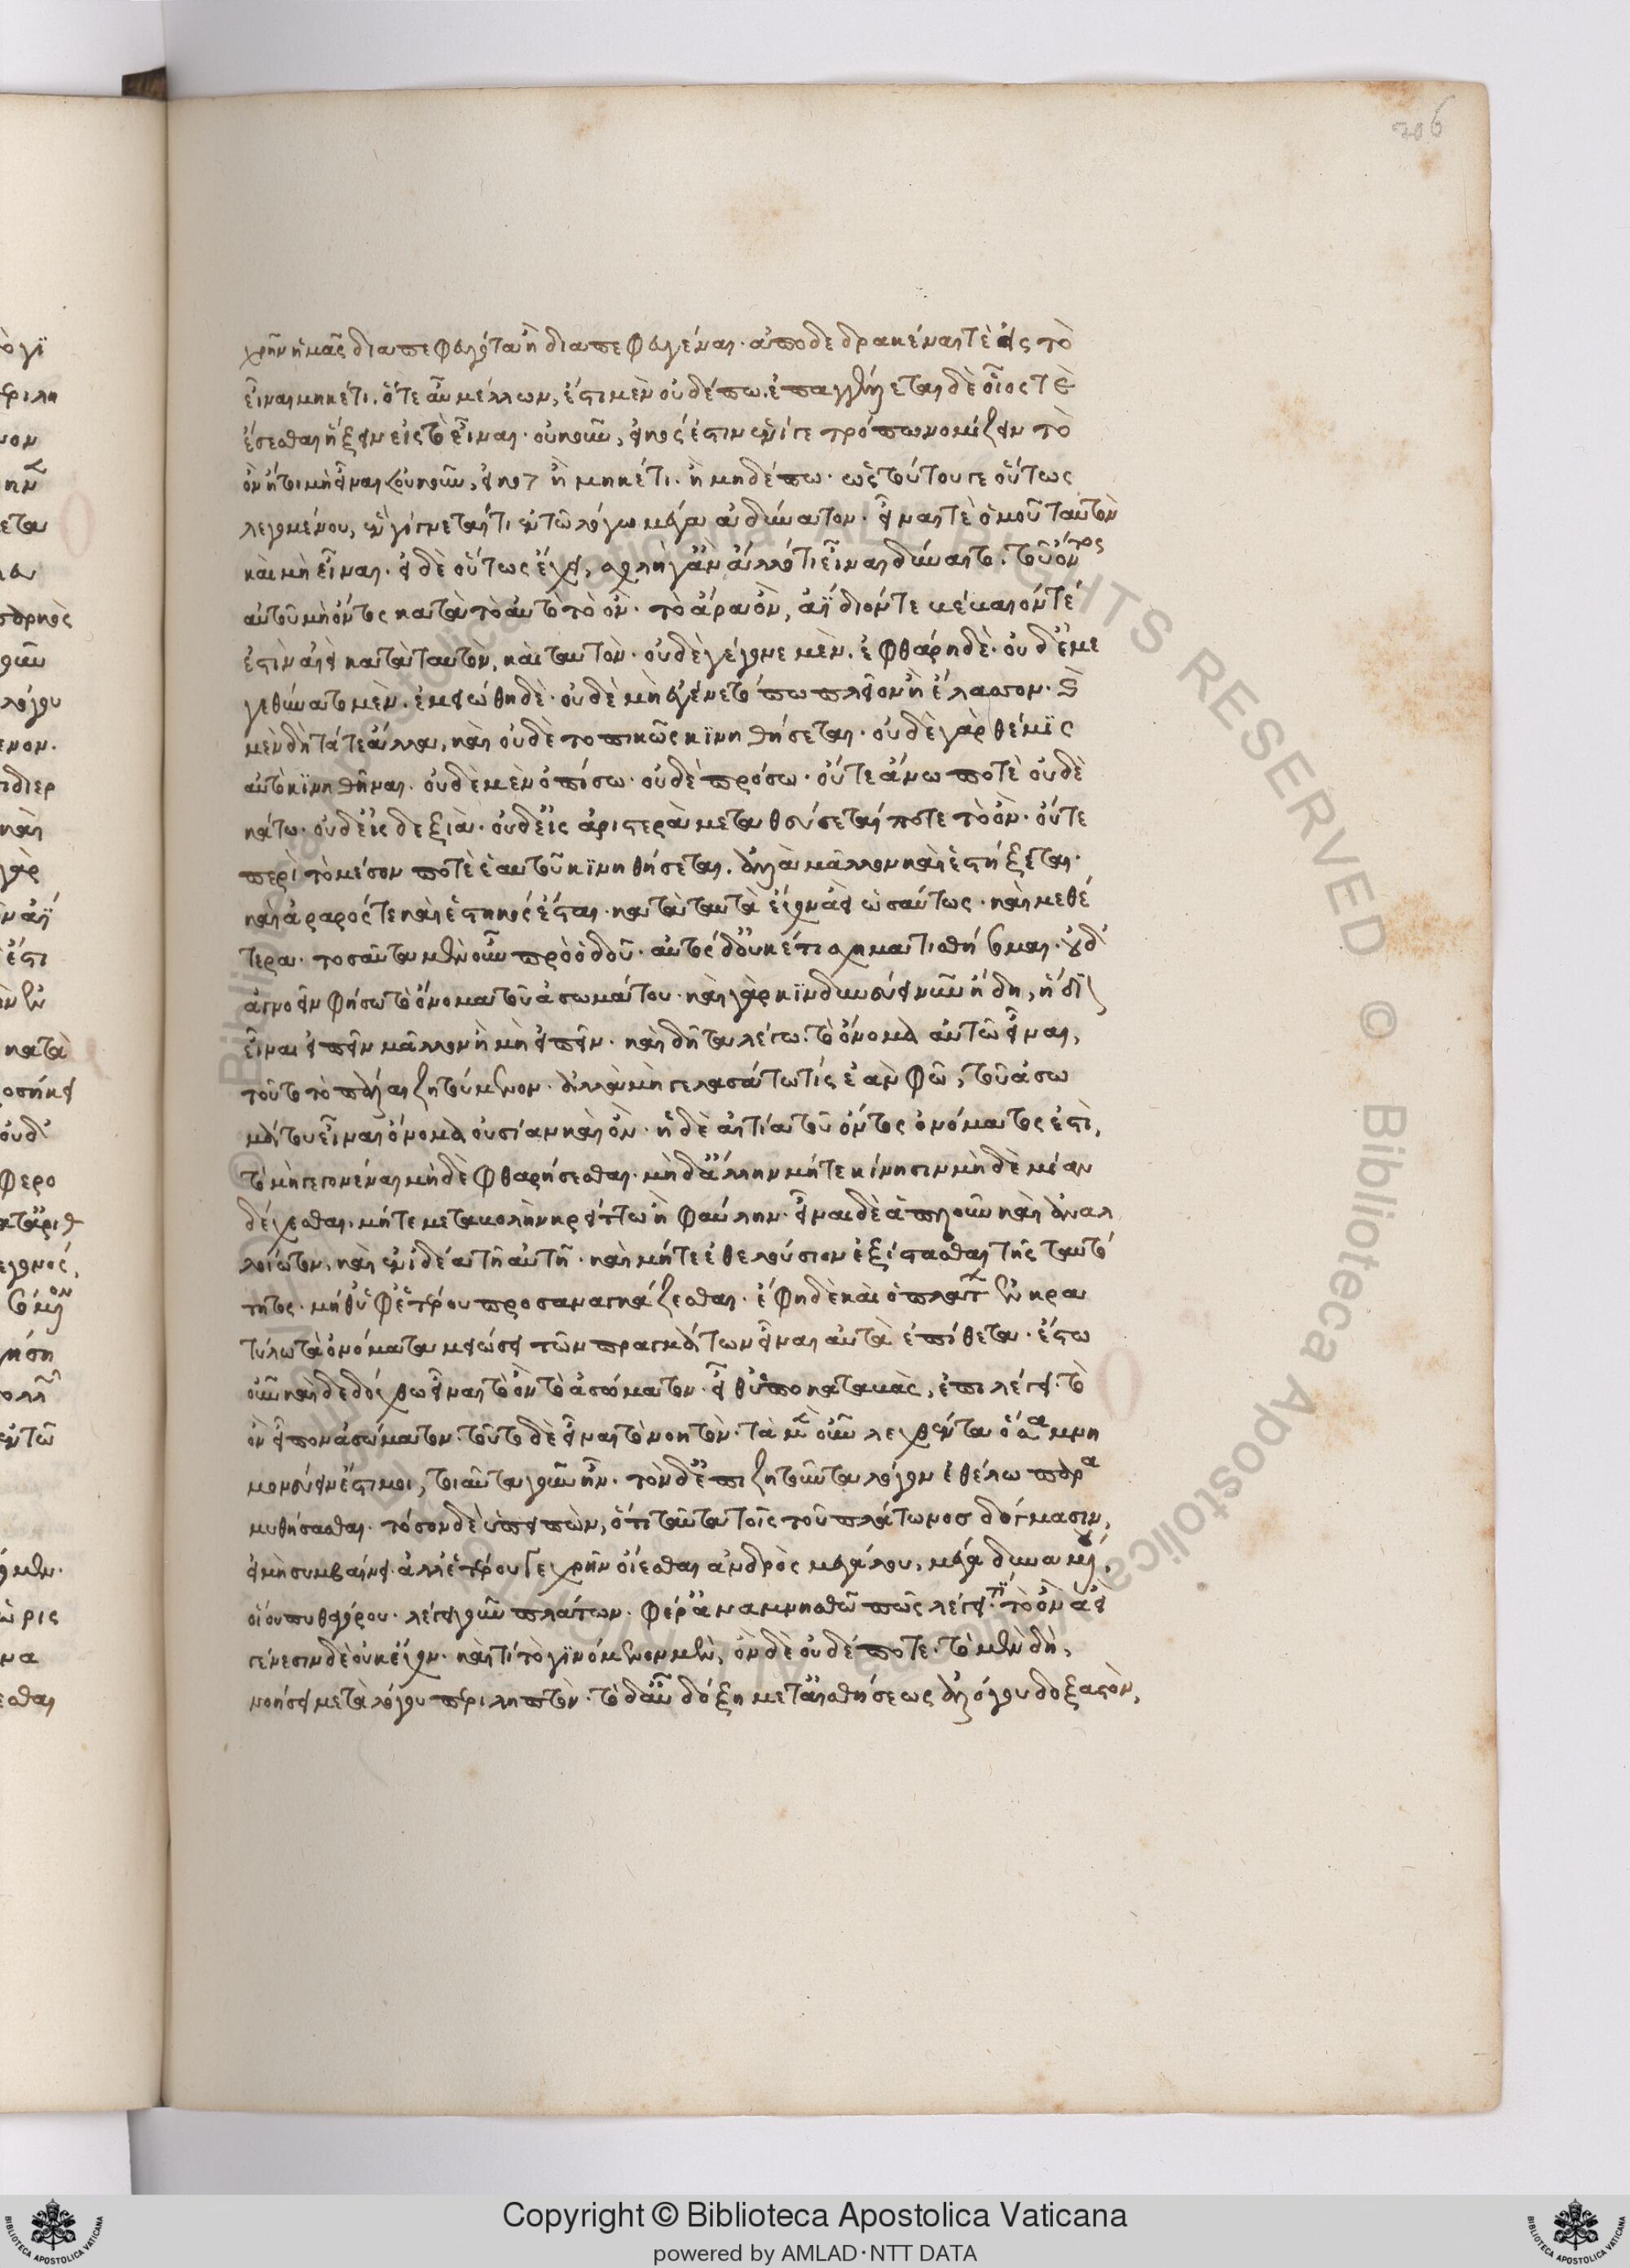 206
χρῆν ἡμᾶς διαπεφευγότα ἢ διαπεφευγέναι· ἀποδεδρακέναι τὲ εἰς τὸ
εἶναι μηκέτι. ὅτε αὖ μέλλων, ἔστι μὲν οὐδέπω. ἐπαγγέλλεται δὲ οἷος τὲ
ἔσεσθαι ἥξειν εἰς τὸ εἶναι· οὔκουν, εἰκός ἐστιν ἑνί γε τρόπω νομίζειν τὸ
ὂν ἤτοι μὴ εἶναι ἢ μηκέτι. ἢ μηδέπω· ὡς τούτου γε οὕτως
λεγομένου, ἐγγίγνεταί τι ἐν τῶ λόγω μέγα ἀδύνατον· εἶναι τὲ ὁμοῦ ταυτὸν
καὶ μὴ εἶναι· εἰ δὲ οὕτως ἔχει, σχολῇ γ' ἂν ἄλλό τι εἶναι δύναιτο· τοῦ ὄντος
αὐτοῦ μὴ ὄντος κατὰ τὸ αὐτὸ τὸ ὄν· τὸ ἄρα ὂν, ἀΐδιόν τε καὶ βέβαιόν τέ
ἐστιν ἀεὶ κατὰ ταυτὸν, καὶ ταυτόν· οὐδὲ γέγονε μὲν. ἐφθάρη δὲ· οὐδ' ἐμε
γεθύνατο μὲν. ἐμειώθη δὲ· οὐδὲ μὴν ἐγένετό πω πλεῖον ἢ ἔλασσον· καὶ
μὲν δὴ τά τε ἄλλα, καὶ οὐδὲ τοπικῶς κϊνηθήσεται· οὐδὲ γὰρ θέμϊς
αὐτὸ κϊνηθῆναι. οὐδὲ μὲν ὀπίσω· οὐδὲ πρόσω· οὔτε ἄνω ποτὲ οὐδὲ
κάτω· οὐδ' εἰς δεξιὰ· οὐδ' εἰς ἀριστερὰ μεταθεύσεταί ποτε τὸ ὄν· οὔτε
περὶ τὸ μέσον ποτὲ ἑαυτοῦ κϊνηθήσεται. ἀλλὰ μᾶλλον καὶ ἑστήξεται·
καὶ ἀραρός τε καὶ ἑστηκός ἔσται· κατὰ ταυτὰ ἔχον ἀεὶ ὡσαύτως· καὶ μεθέ
τερα· τοσαῦτα μὲν οὖν πρὸ ὁδοῦ· αὐτὸς δ' οὐκέτι σχηματισθήσομαι. οὐδ'
ἀγνοεῖν φήσω τὸ ὄνομα τοῦ ἀσωμάτου· καὶ γὰρ κϊνδυνεύειν νῦν ἤδη, ἥδϊ
εἶναι εἰπεῖν μᾶλλον ἢ μὴ εἰπεῖν. καὶ δῆτα λέγω. τὸ ὄνομα αὐτῶ εἶναι,
τοῦτο τὸ πάλαι ζητούμενον· ἀλλὰ μὴ γελασάτω τίς ἐὰν φῶ, τοῦ ἀσω
μάτου εἶναι ὄνομα οὐσίαν καὶ ὄν· ἡ δὲ αἰτία τοῦ ὄντος ὀνόματος ἐστὶ,
τὸ μὴ γεγονέναι μηδὲ φθαρήσεσθαι· μηδ' ἄλλην μήτε κίνησιν μηδὲ μίαν
δέχεσθαι. μήτε μεταβολὴν κρείττω ἢ φαύλην· εἶναι δὲ ἁπλοῦν καὶ ἀναλ
λοίωτον· καὶ ἐν ἰδέα τῆ αὐτῆ· καὶ μήτε ἐθελούσιον ἐξίστασθαι τῆς ταυτό
τητος· μήθ' ὑφ' ἑτέρου προσαναγκάζεσθαι· ἔφη δὲ καὶ ὁ πλάτων ἐν κρα
τύλω τὰ ὀνόματα ὁμοιώσει τῶν πραγμάτων εἶναι αὐτὰ ἐπίθετα· ἔστω
οὖν καὶ δεδόχθω εἶναι τὸ ὂν τὸ ἀσώματον. εἶθ' ὑποκαταβὰς, ἐπιλέγει· τὸ
ὂν εἶπον ἀσώματον. τοῦτο δὲ εἶναι τὸ νοητόν· τὰ μὲν οὖν λεχθέντα ὅσα μνη
μονεύειν ἔστι μοι, τοιαῦτα γοῦν ἦν. τὸν δ' ἐπιζητοῦντα λόγον ἐθέλω παρα
μυθήσασθαι. τόσον δὲ ὑπειπὼν, ὅτι ταῦτα τοῖς τοῦ πλάτωνος δόγμασιν,
εἰ μὴ συμβαίνει ἀλλ' ἑτέρου γε χρῆν οἴεσθαι ἀνδρὸς μεγάλου, μέγα δυναμένου,
οἵου πυθαγόρου· λέγει γοῦν πλάτων· φέρ' ἀναμνησθῶ πῶς λέγει· τί τὸ ὂν ἀεὶ
γένεσιν δὲ οὐκ ἔχον· καὶ τί τὸ γϊνόμενον μὲν, ὂν δὲ οὐδέποτε· τὸ μὲν δὴ,
νοήσει μετὰ λόγου περιληπτόν· τὸ δ' αὖ δόξη μετ' αἰσθήσεως ἀλόγου δοξαστὸν,
Copyright © Biblioteca Apostolica Vaticana
powered by AMLAD·NTT DATA